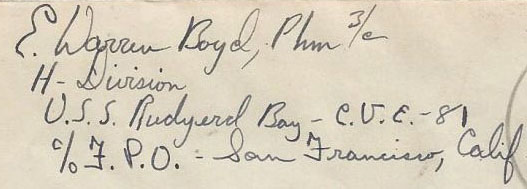 E. Warren Boyd, Phm 3/c
H-Division
U.S.S. Rudyerd Bay - C.V.E.-81
c/o F.P.O. - San Francisco, Calif